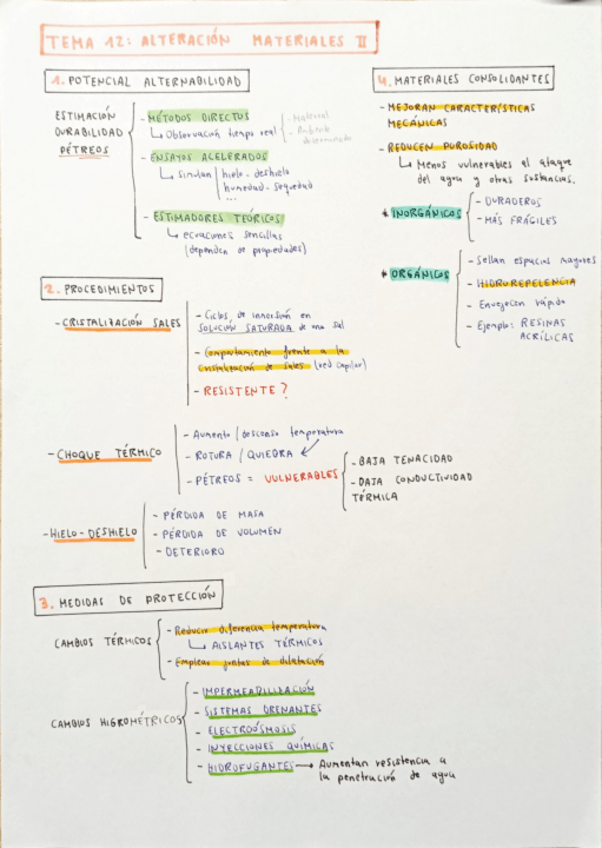 TEMA 12: ALTERACIÓN MATERIALES II
1. POTENCIAL ALTERNABILIDAD
ESTIMACIÓN
DURABILIDAD
PÉTREOS
- MÉTODOS DIRECTOS
↳ Observación tiempo real
- Material
- Ambiente
determinado
- ENSAYOS ACELERADOS
↳ simulan
hielo-deshielo
humedad-sequedad
...
- ESTIMADORES TEÓRICOS
↳ ecuaciones sencillas
(dependen de propiedades)
2. PROCEDIMIENTOS
- CRISTALIZACIÓN SALES
- Ciclos de inmersión en
SOLUCIÓN SATURADA de una sal
- Comportamiento frente a la
cristalización de sales (red capilar)
- RESISTENTE?
- CHOQUE TÉRMICO
- Aumento / descenso temperatura
- ROTURA / QUIEBRA
- PÉTREOS = VULNERABLES
- BAJA TENACIDAD
- BAJA CONDUCTIVIDAD
TÉRMICA
- HIELO-DESHIELO
- PÉRDIDA DE MASA
- PÉRDIDA DE VOLUMEN
- DETERIORO
3. MEDIDAS DE PROTECCIÓN
CAMBIOS TÉRMICOS
- Reducir diferencia temperatura
↳ AISLANTES TÉRMICOS
- Emplear juntas de dilatación
CAMBIOS HIGROMÉTRICOS
- IMPERMEABILIZACIÓN
- SISTEMAS DRENANTES
- ELECTROÓSMOSIS
- INYECCIONES QUÍMICAS
- HIDROFUGANTES → Aumentan resistencia a
la penetración de agua
4. MATERIALES CONSOLIDANTES
- MEJORAN CARACTERÍSTICAS
MECÁNICAS
- REDUCEN POROSIDAD
↳ Menos vulnerables al ataque
del agua y otras sustancias.
* INORGÁNICOS
- DURADEROS
- MÁS FRÁGILES
* ORGÁNICOS
- Sellan espacios mayores
- HIDROREPELENCIA
- Envejecen rápido
- Ejemplo: RESINAS
ACRÍLICAS